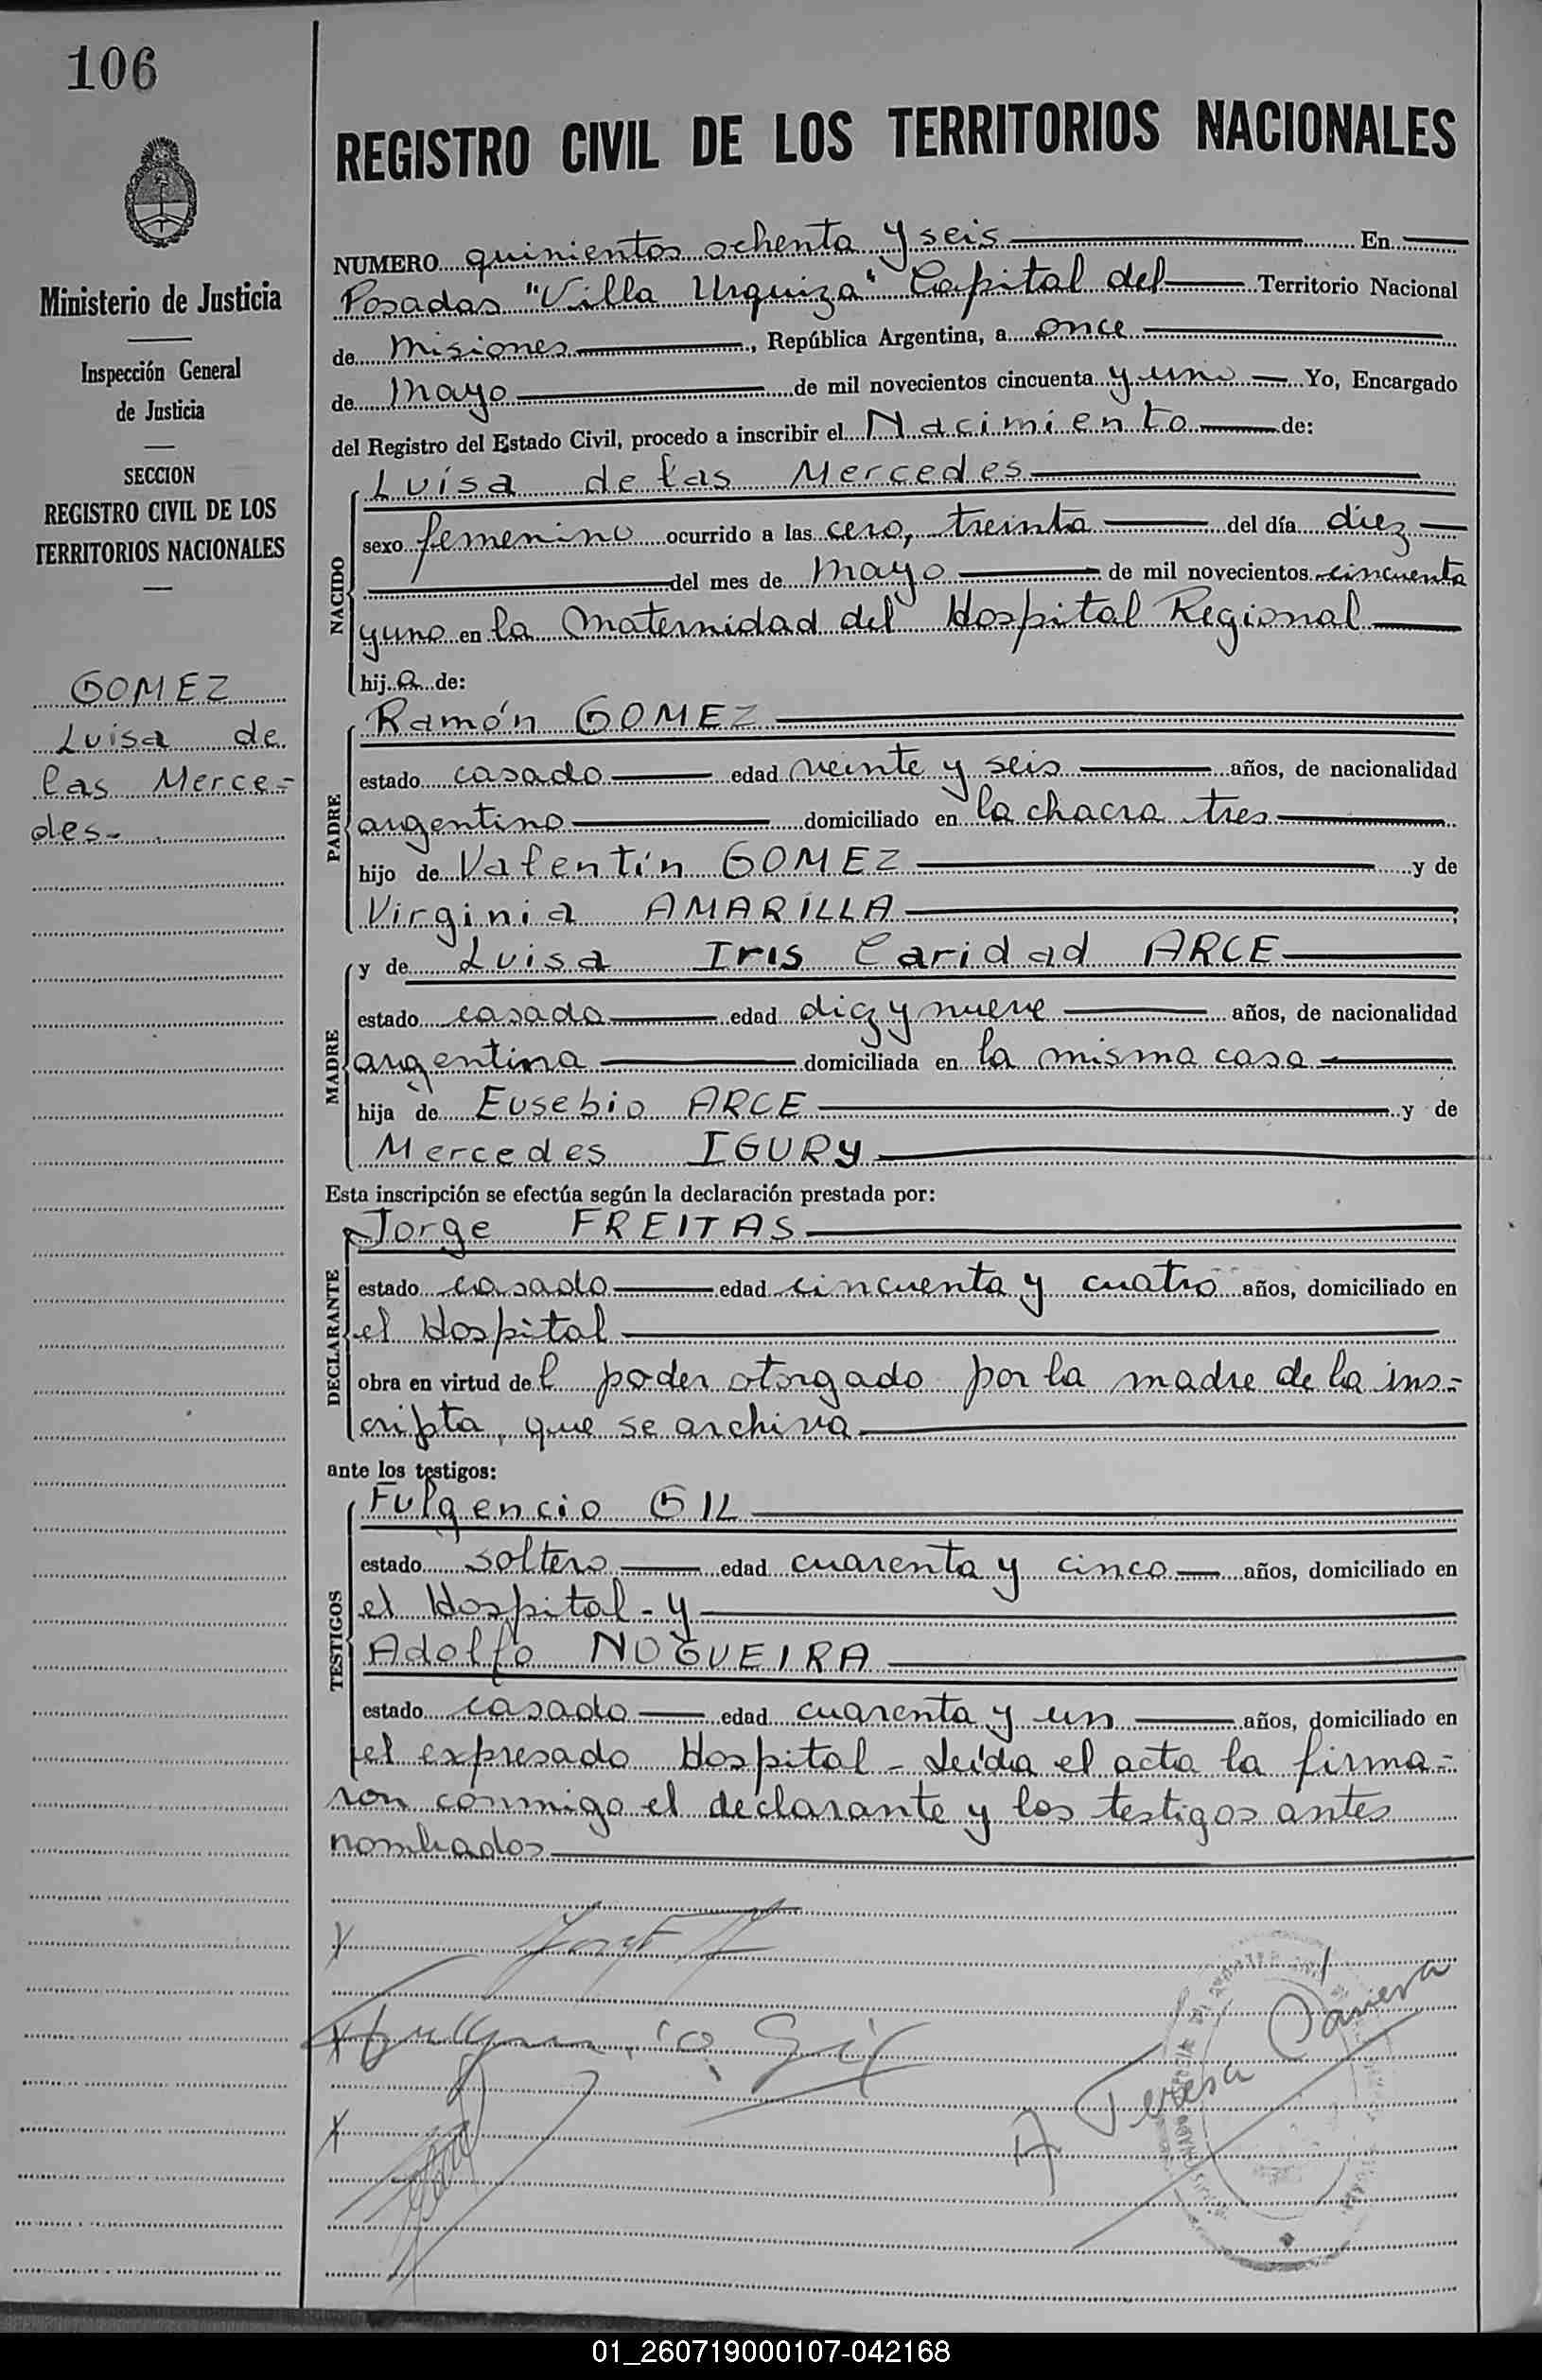 106
REGISTRO CIVIL DE LOS TERRITORIOS NACIONALES
Ministerio de Justicia
Inspección General
de Justicia
SECCION
REGISTRO CIVIL DE LOS
TERRITORIOS NACIONALES
GOMEZ
Luisa de
las Merce-
des-
NUMERO quinientos ochenta y seis En
Posadas "Villa Urquiza" Capital del Territorio Nacional
de Misiones, República Argentina, a once
de Mayo de mil novecientos cincuenta y uno Yo, Encargado
del Registro del Estado Civil, procedo a inscribir el Nacimiento de:
NACIDO
Luisa de las Mercedes
sexo femenino ocurrido a las cero, treinta del día diez
del mes de Mayo de mil novecientos cincuenta
y uno en la Maternidad del Hospital Regional
hija de:
PADRE
Ramón GOMEZ
estado casado edad veinte y seis años, de nacionalidad
argentino domiciliado en la chacra tres
hijo de Valentín GOMEZ y de
Virginia AMARILLA
MADRE
y de Luisa Iris Caridad ARCE
estado casada edad diez y nueve años, de nacionalidad
argentina domiciliada en la misma casa
hija de Eusebio ARCE y de
Mercedes IGURY
Esta inscripción se efectúa según la declaración prestada por:
DECLARANTE
Jorge FREITAS
estado casado edad cincuenta y cuatro años, domiciliado en
el Hospital
obra en virtud del poder otorgado por la madre de la ins-
cripta, que se archiva
ante los testigos:
TESTIGOS
Fulgencio GIL
estado soltero edad cuarenta y cinco años, domiciliado en
el Hospital - y
Adolfo NOGUEIRA
estado casado edad cuarenta y un años, domiciliado en
el expresado Hospital - Leída el acta la firma-
ron conmigo el declarante y los testigos antes
nombrados
Fulgencio Gil
A Teresa
01_260719000107-042168